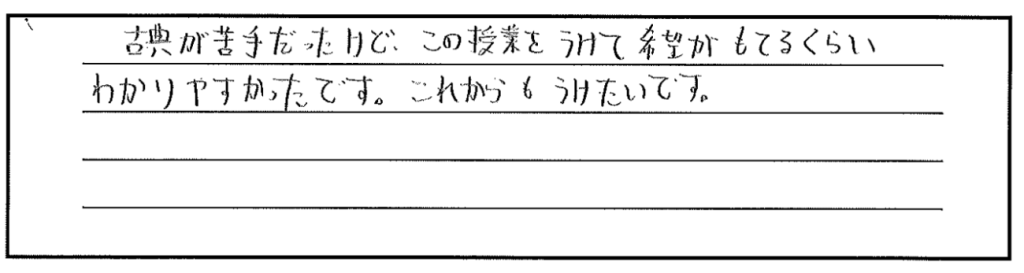 古典が苦手だったけど、この授業をうけて希望がもてるくらい
わかりやすかったです。これからもうけたいです。